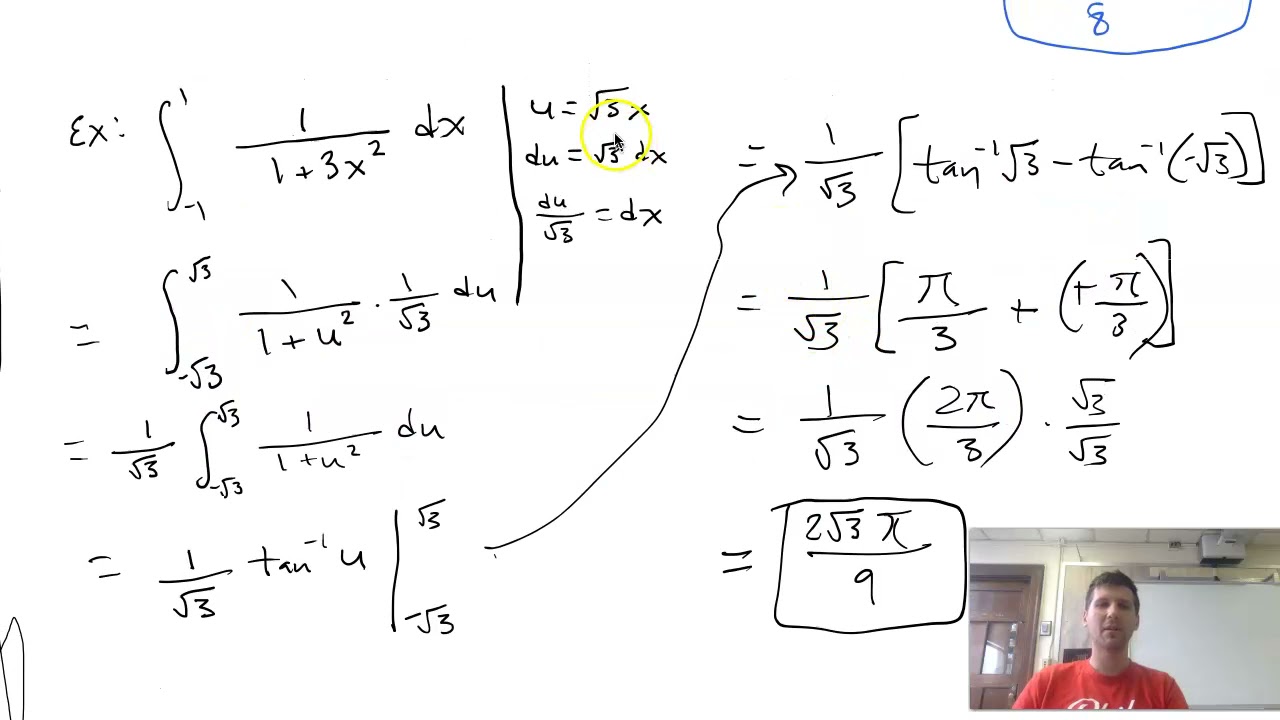 8
Ex: ∫_{-1}^{1} 1/(1+3x²) dx
u = √3x
du = √3 dx
du/√3 = dx
= ∫_{-√3}^{√3} 1/(1+u²) · 1/√3 du
= 1/√3 ∫_{-√3}^{√3} 1/(1+u²) du
= 1/√3 tan⁻¹ u |_{-√3}^{√3}
= 1/√3 [tan⁻¹√3 - tan⁻¹(-√3)]
= 1/√3 [π/3 + (+π/3)]
= 1/√3 (2π/3) · √3/√3
= 2√3 π/9